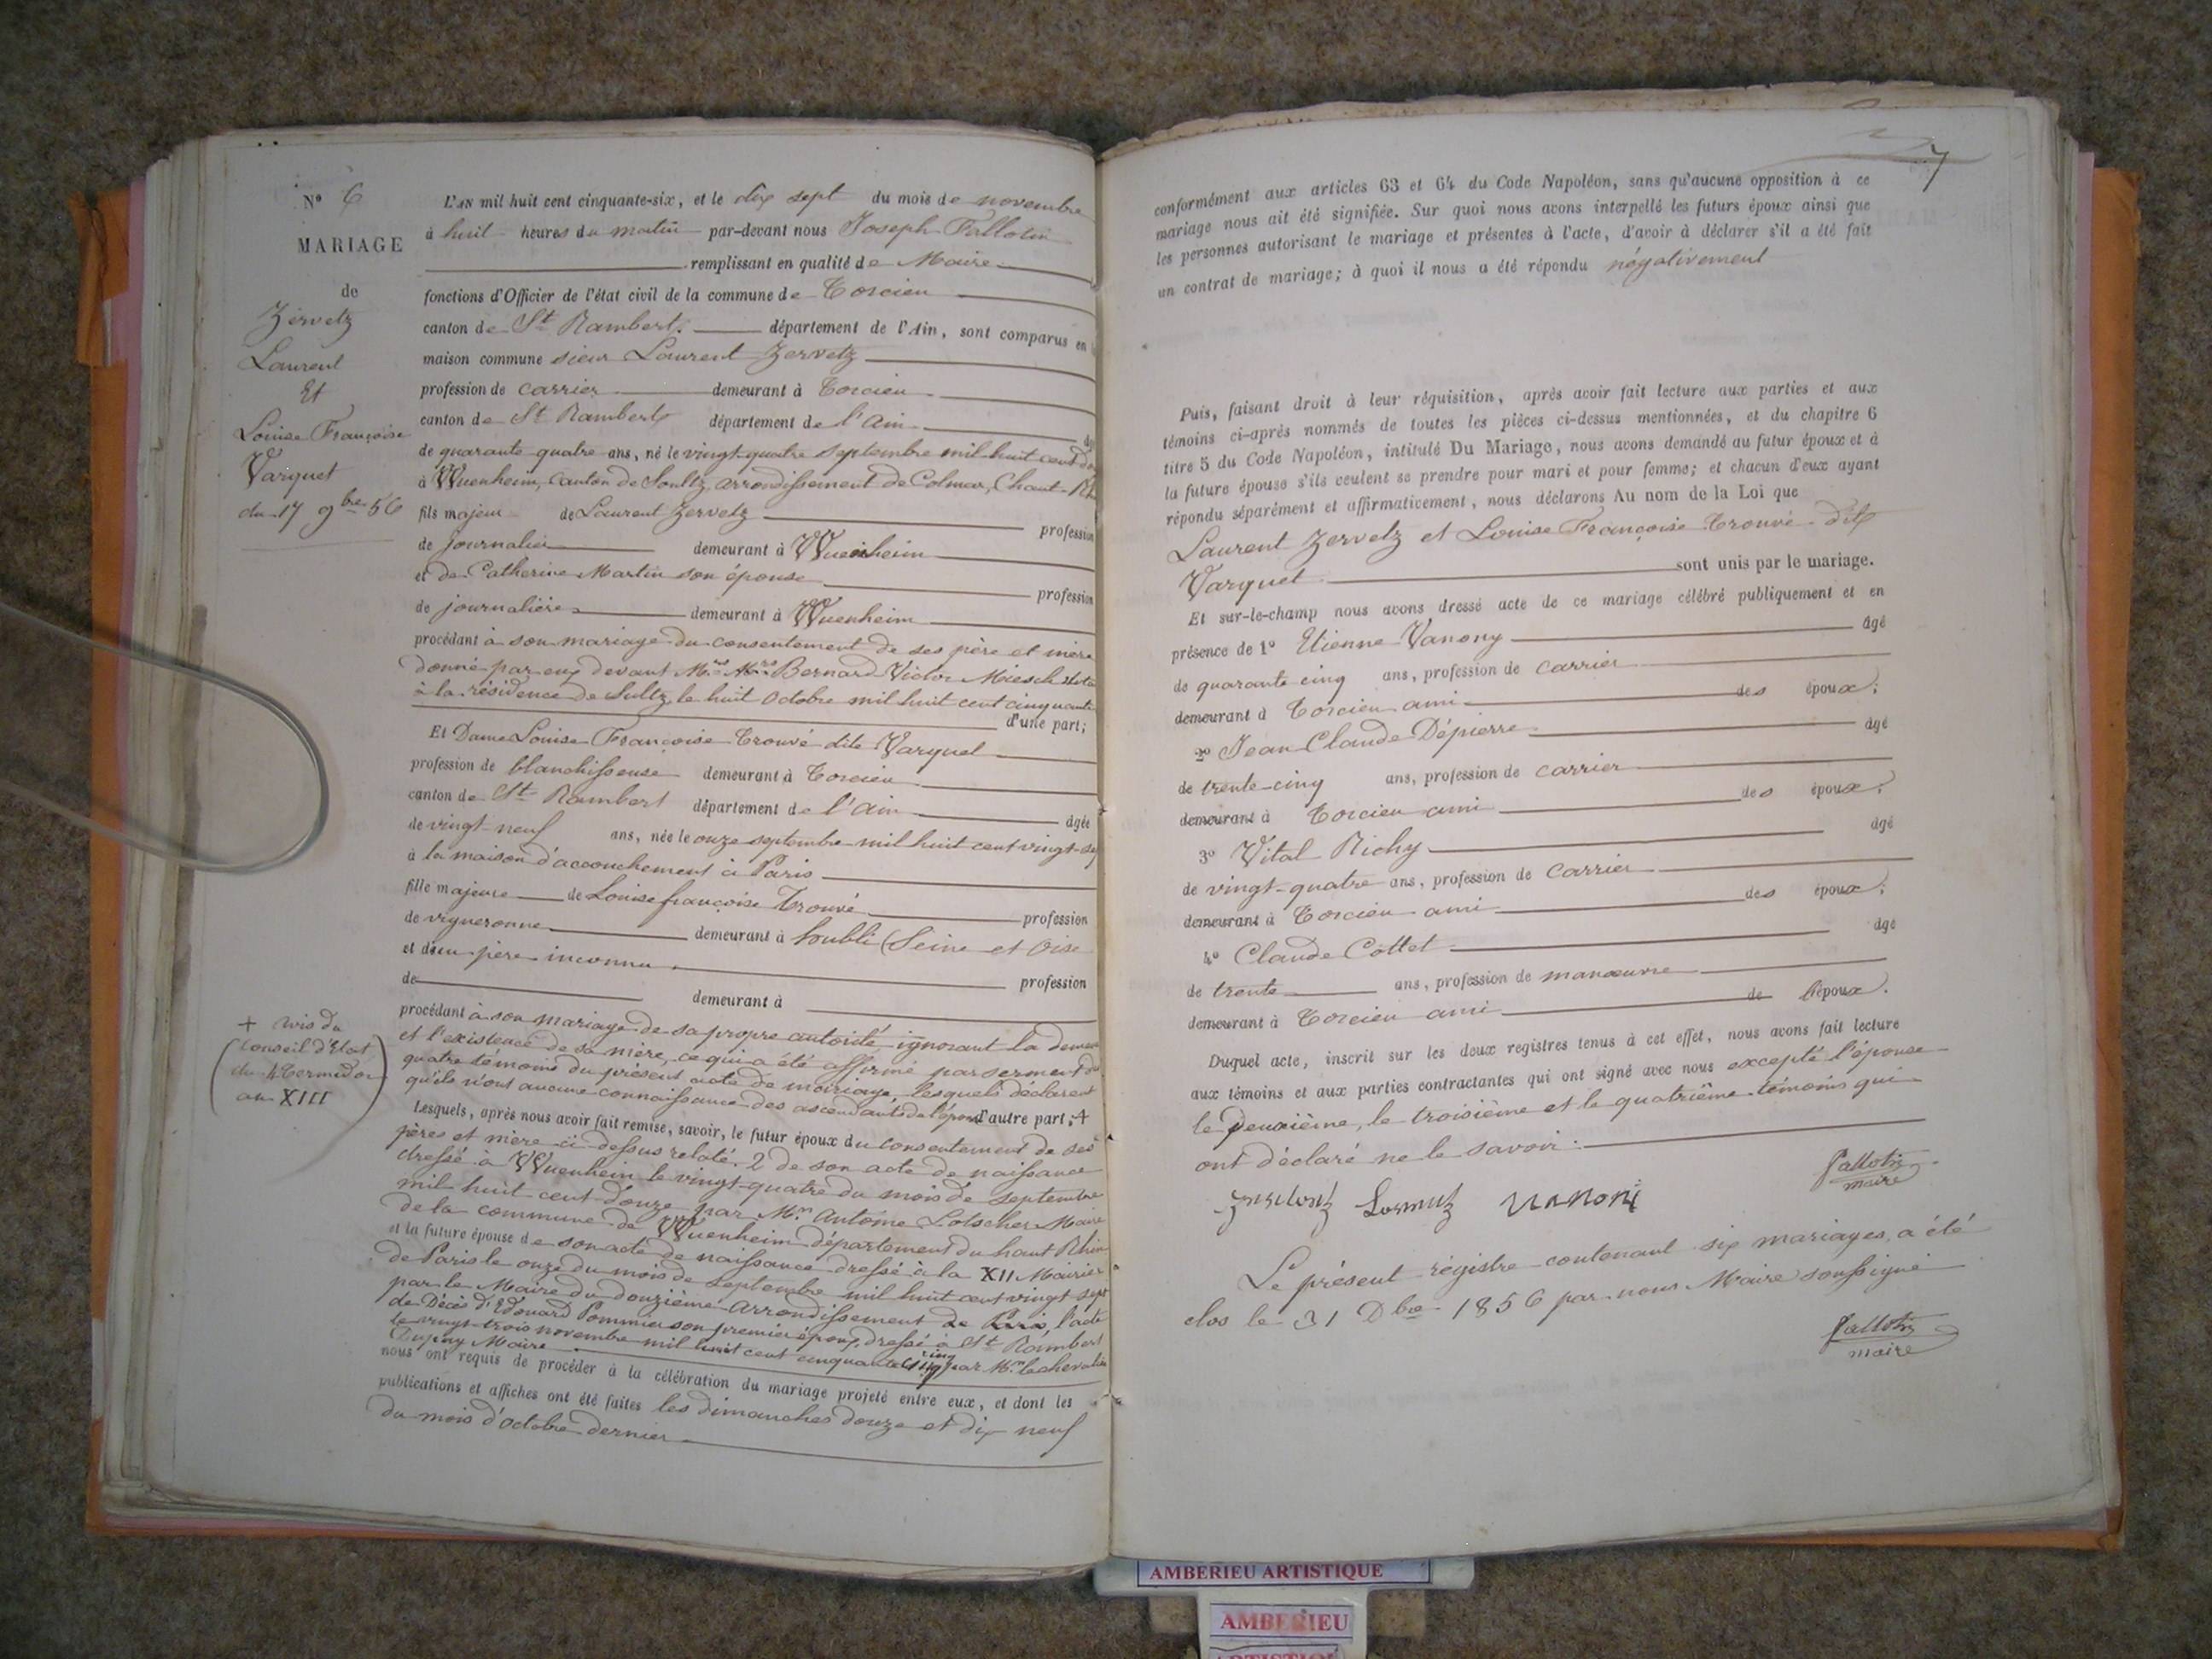 N° 6
MARIAGE
de
Zervetz
Laurent
Et
Louise Françoise
Varquet
du 17 9bre 56
L'AN mil huit cent cinquante-six, et le dix sept du mois de novembre
à huit heures du matin par-devant nous Joseph Fallotin
remplissant en qualité de Maire
fonctions d'Officier de l'état civil de la commune de Torcieu
canton de St Rambert. département de l'Ain, sont comparus en
maison commune sieur Laurent Zervetz
profession de carrier demeurant à Torcieu
canton de St Rambert département de l'Ain
de quarante quatre ans, né le vingt-quatre septembre mil huit cent
à Wuenheim, canton de Soultz, arrondissement de Colmar, (haut-Rh
fils majeur de Laurent Zervetz profession
de journalier demeurant à Wuenheim
et de Catherine Martin son épouse profession
de journalière demeurant à Wuenheim
procédant à son mariage du consentement de ses père et mère
donné par eux devant Bernard Victor Miesch
à la résidence de Sultz, le huit Octobre mil huit cent cinquante
d'une part;
Et Dame Louise Françoise Trouvé dite Varquet
profession de blanchisseuse demeurant à Torcieu
canton de St Rambert département de l'Ain âgée
de vingt-neuf ans, née le onze septembre mil huit cent vingt-sep
à la maison d'accouchement à Paris
fille majeure de Louise françoise Trouvé profession
de vigneronne demeurant à (Seine et Oise
et d'un père inconnu profession
de demeurant à
procédant à son mariage de sa propre autorité ignorant la demeu
et l'existence de sa mère, ce qui a été affirmé par serment du
quatre témoins du présent acte de mariage, lesquels déclarent
qu'ils n'ont aucune connaissance des ascendants de l'épouse d'autre part; +
+ avis du
Conseil d'Etat
du 4 Termidor
an XIII
Lesquels, après nous avoir fait remise, savoir, le futur époux du consentement de ses
pères et mère ci-dessus relaté. 2 de son acte de naissance
dressé à Wuenheim le vingt-quatre du mois de septembre
mil huit cent douze par Mr. Antoine Lotscher Maire
de la commune de Wuenheim département du haut Rhin
et la future épouse de son acte de naissance dressé à la XII Mairie
de Paris le onze du mois de septembre mil huit cent vingt sept
par le Maire du douzième arrondissement de Paris, l'acte
de Décès d'Edouard Pommier son premier époux, dressé à St Rambert
le vingt-trois novembre mil huit cent cinquante cinq par Mr. lechevalier
Dupuy Maire
nous ont requis de procéder à la célébration du mariage projeté entre eux, et dont les
publications et affiches ont été faites les dimanches douze et dix neuf
du mois d'octobre dernier
7
conformément aux articles 63 et 64 du Code Napoléon, sans qu'aucune opposition à ce
mariage nous ait été signifiée. Sur quoi nous avons interpellé les futurs époux ainsi que
les personnes autorisant le mariage et présentes à l'acte, d'avoir à déclarer s'il a été fait
un contrat de mariage; à quoi il nous a été répondu négativement
Puis, faisant droit à leur réquisition, après avoir fait lecture aux parties et aux
témoins ci-après nommés de toutes les pièces ci-dessus mentionnées, et du chapitre 6
titre 5 du Code Napoléon, intitulé Du Mariage, nous avons demandé au futur époux et à
la future épouse s'ils veulent se prendre pour mari et pour femme; et chacun d'eux ayant
répondu séparément et affirmativement, nous déclarons Au nom de la Loi que
Laurent Zervetz et Louise Françoise Trouvé dite
Varquet sont unis par le mariage.
Et sur-le-champ nous avons dressé acte de ce mariage célébré publiquement et en
présence de 1° Etienne Vanony âgé
de quarante cinq ans, profession de carrier
demeurant à Torcieu ami des époux;
2° Jean Claude Dépierre âgé
de trente-cinq ans, profession de carrier
demeurant à Torcieu ami des époux;
3° Vital Richy âgé
de vingt-quatre ans, profession de carrier
demeurant à Torcieu ami des époux;
4° Claude Cottet âgé
de trente ans, profession de manœuvre
demeurant à Torcieu ami de l'époux.
Duquel acte, inscrit sur les deux registres tenus à cet effet, nous avons fait lecture
aux témoins et aux parties contractantes qui ont signé avec nous excepté l'épouse
le deuxième, le troisième et le quatrième témoins qui
ont déclaré ne le savoir.
Fallotin
maire
Vanoni
Le présent régistre contenant six mariages, a été
clos le 31 Dbre 1856 par nous Maire soussigné
Fallotin
maire
AMBERIEU ARTISTIQUE
AMBERIEU
ARTISTIQUE